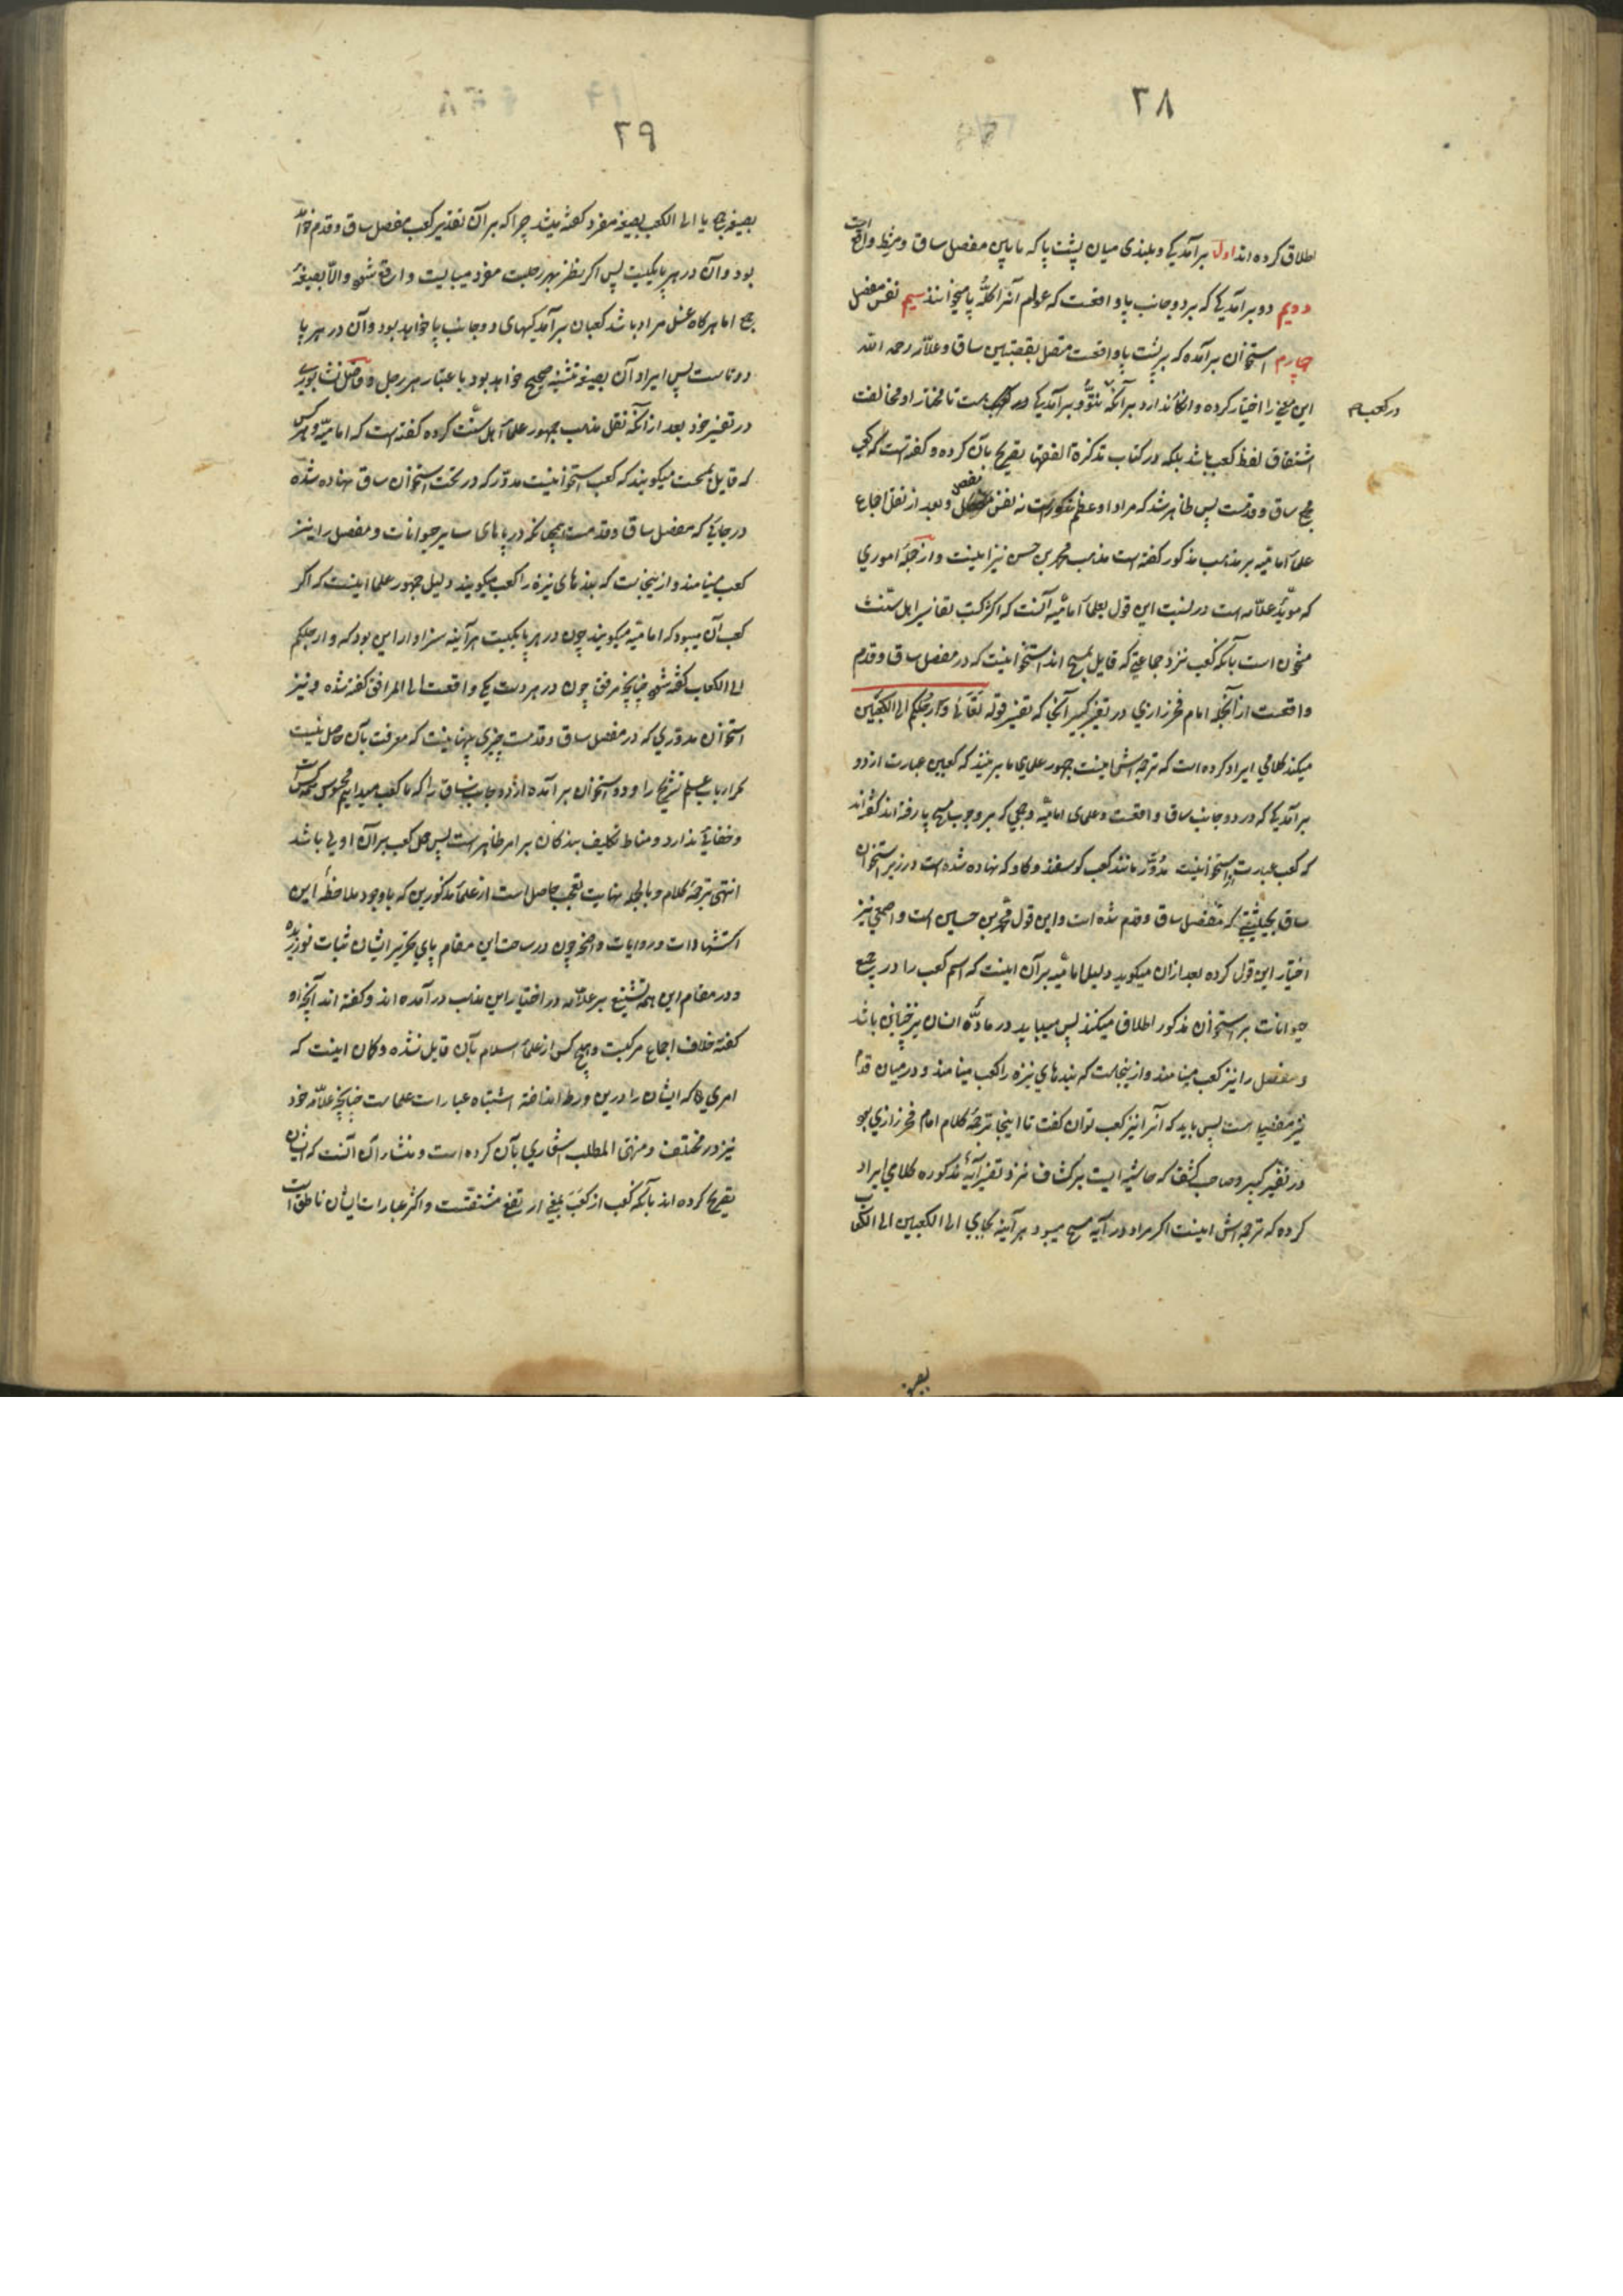 ۲۸
اطلاق کرده اند اول برآمدیکی و بلندی میان پشت پا که مابین مفصل ساق و مشط واقع است
دویم دو برآمدیکی که بر دو جانب پا واقعست که عوام آنرا کلّه پا میخوانند سیم نفس مفصل
چارم استخوان برآمده که بر پشت پا واقعست متصل بقصبتین ساق و علاّمه رحمه الله
این معنی را اختیار کرده و انکار ندارد بر آنکه نتوّ و برآمدیکی در کعب هست تا مختار او مخالفت
در کعب
اشتقاق لفظ کعب باشد بلکه در کتاب تذکرة الفقها تصریح بآن کرده و کفته است که کعب
مجمع ساق و قدمست پس ظاهر شد که مراد او عظم مذکور است نه نفس مفصل و بعد از نقل اجماع
علمآ امامیّه بر مذهب مذکور کفته است مذهب محمد بن حسن نیز اینست و از جملهٔ اموری
که مؤیّد علاّمه است در نسبت این قول بعلمآ امامیّه آنست که اکثر کتب تفاسیر اهل سنّت
مشحون است بآنکه کعب نزد جماعتی که قایل بمسح اند استخوانیست که در مفصل ساق و قدم
واقعست از آنجمله امام فخر رازی در تفسیر کبیر آنجا که تفسیر قوله تعالی و ارجلکم الی الکعبین
میکند کلامی ایراد کرده است که ترجمه اش اینست جمهور علمای ما برینند که کعبین عبارت از دو
برآمدیکی که در دو جانب ساق واقعست و علمای امامیّه و جمعی که بر وجوب مسح پا رفته اند کفته اند
که کعب عبارت از استخوانیست مدوّر مانند کعب کوسفند و کاو که نهاده شده است در زیر استخوان
ساق بحیثیتی که مفصل ساق و قدم شده است و این قول محمد بن حسین است و اصمعی نیز
اختیار این قول کرده بعد از ان میکوید دلیل امامیّه بر آن اینست که اسم کعب را در جمیع
حیوانات بر استخوان مذکور اطلاق میکنند پس میباید در مادّه انسان نیز چنین باشد
و مفصل را نیز کعب مینامند و ازینجاست که بندهای نیزه را کعب مینامند و در میان قدم
نیز مفصلی است پس باید که آنرا نیز کعب توان کفت تا اینجا ترجمهٔ کلام امام فخر رازی بود
در تفسیر کبیر و صاحب کشف که حاشیه ایست بر کشاف نزد تفسیر آیهٔ مذکوره کلامی ایراد
کرده که ترجمه اش اینست اکر مراد در آیه مسح میبود هر آینه بجای الی الکعبین الی الکعاب
بصیغه
۲۹
بصیغهٔ جمع یا الی الکعب بصیغهٔ مفرد کفته میشد چرا که بر آن تقدیر کعب مفصل ساق و قدم خواهد
بود و آن در هر پا یکیست پس اکر نظر بهر رجلست مفرد میبایست وارد شود و الاّ بصیغهٔ
جمع اما هرکاه غسل مراد باشد کعبان برآمدکیهای دو جانب پا خواهد بود و آن در هر پا
دوتاست پس ایراد آن بصیغهٔ تثنیه صحیح خواهد بود باعتبار هر رجل و فاضل نشابوری
در تفسیر خود بعد از آنکه نقل مذهب جمهور علمآ اهل سنّت کرده کفته است که امامیّه و هر کس
که قایل بمسحست میکویند که کعب استخوانیست مدوّر که در تحت استخوان ساق نهاده شده
در جایی که مفصل ساق و قدمست همچنانکه در پاهای سایر حیوانات و مفصل را نیز
کعب مینامند و ازینجاست که بندهای نیزه را کعب میکویند دلیل جمهور علما اینست که اکر
کعب آن میبود که امامیّه میکویند چون در هر پا یکیست هر آینه سزاوار این بود که و ارجلکم
الی الکعاب کفته شود چنانچه مرفق چون در هر دست یکی واقعست الی المرافق کفته شده و نیز
استخوان مدوّری که در مفصل ساق و قدمست چیزی پنهانیست که معرفت بآن حاصل نیست
مکر ارباب علم تشریح را و دو استخوان برآمده از دو جانب ساق را که ما کعب میدانیم محسوس همه کس است
و خفایی ندارد و مناط تکلیف بندکان بر امر ظاهر است پس حمل کعب بر آن اولی باشد
انتهی ترجمهٔ کلام و بالجمله نهایت تعجب حاصل است از علمآ مذکورین که با وجود ملاحظهٔ این
استشهادات و روایات واضحه چون در ساحت این مقام پای تحریر ایشان ثبات نورزیده
و در مقام این همه تشنیع بر علاّمه در اختیار این مذهب درآمده اند و کفته اند آنچه او
کفته خلاف اجماع مرکبست و هیچ کس از علمآ اسلام بآن قایل نشده و کان اینست که
امری که ایشان را درین ورطه انداخته اشتباه عبارات علماست چنانچه علاّمه خود
نیز در مختلف و منتهی المطلب اشعاری بآن کرده است و منشاء آن آنست که ایشان
تصریح کرده اند بآنکه کعب از کعب بمعنی ارتفع مشتقست و اکثر عبارات ایشان ناطق است